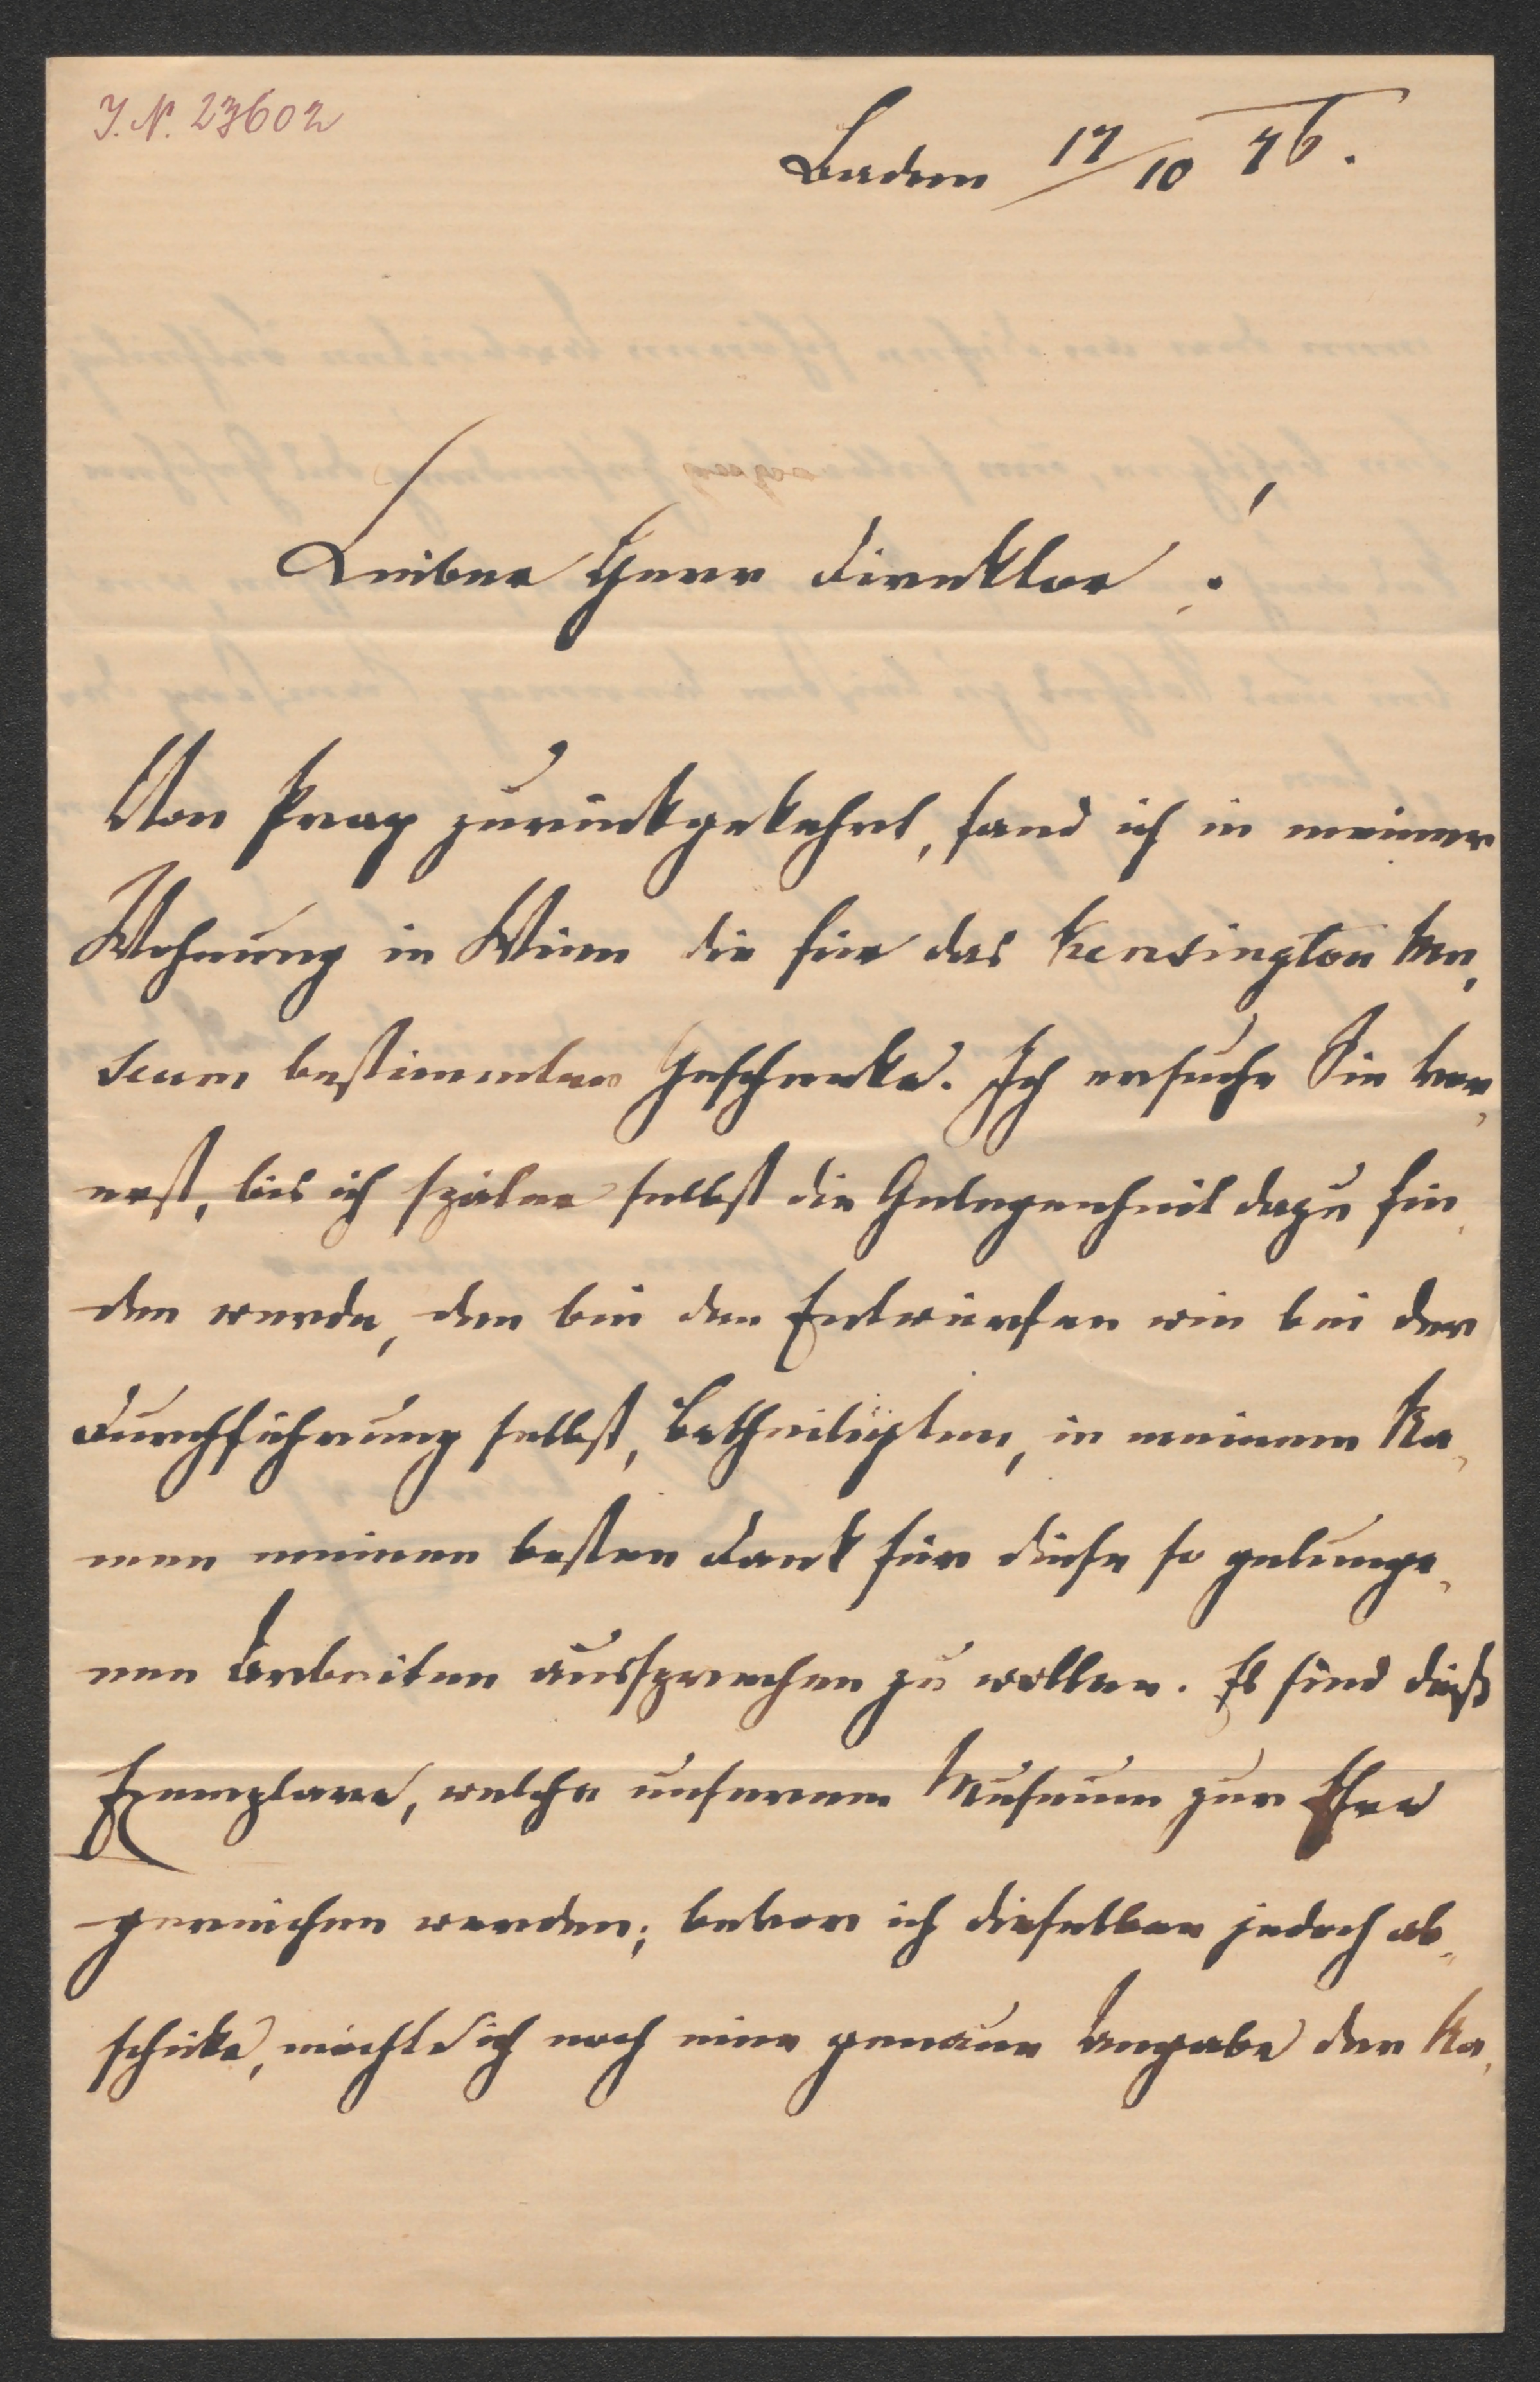 I. N. 23602
Baden 17/10 76.
Lieber Herr Direktor!
Von Prag zurückgekehrt, fand ich in meiner
Wohnung in Wien die für das Kensington Mu,
seum bestimmten Geschenke. Ich ersuche Sie vor,
erst, bis ich später selbst die Gelegenheit dazu fin,
den werde, den bei den Entwürfen wie bei der
Durchführung selbst, Betheiligten, in meinem Na,
men meinen besten Dank für diese so gelunge,
nen Arbeiten aussprechen zu wollen. Es sind dieß
Exemplare, welche unserem Museum zur Ehre
gereichen werden; bevor ich dieselben jedoch ab,
schicke, möchte ich noch eine genaue Angabe der Na,